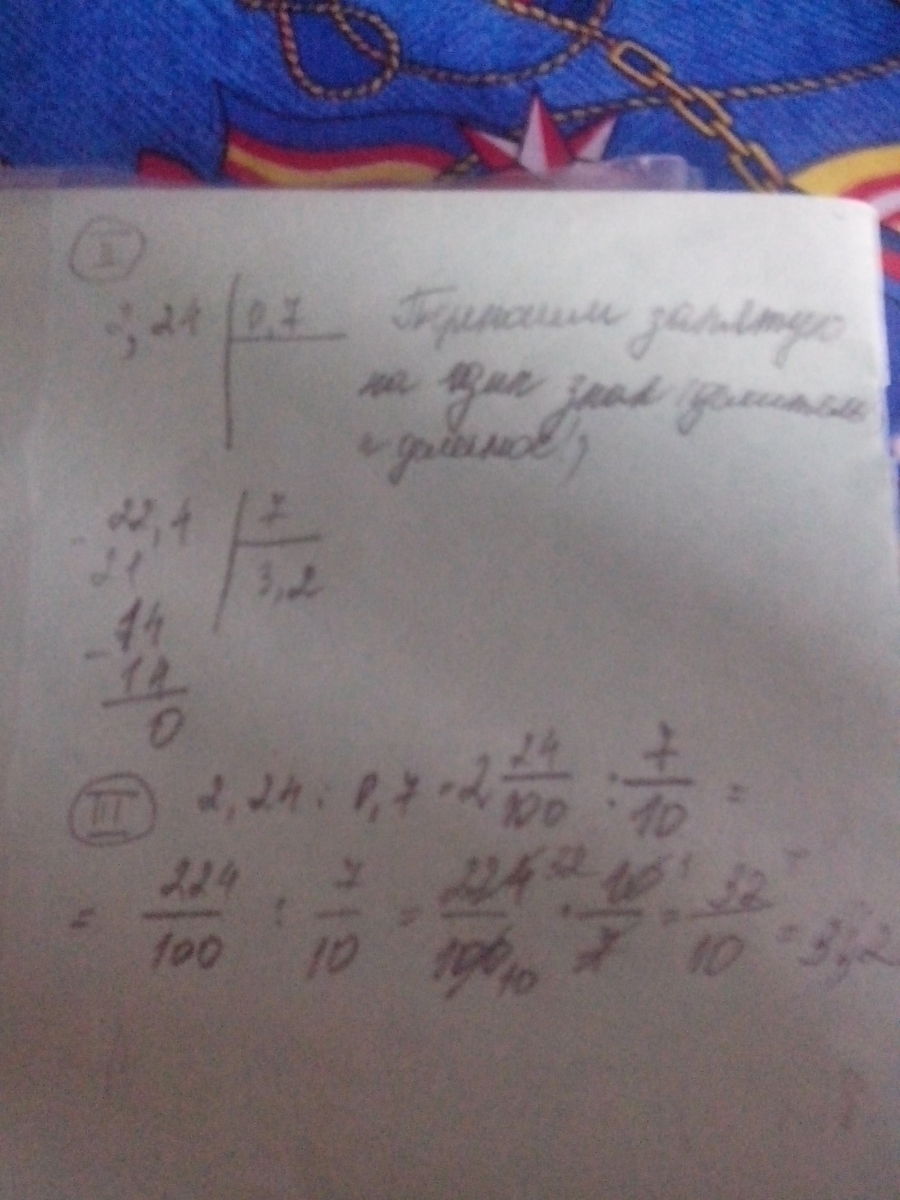 II
2,24 | 0,7 Переносим запятую
на один знак (делитель
и делимое),
- 22,4 | 7
21 | 3,2
- 14
14
0
III 2,24 : 0,7 = 2 24/100 : 7/10 =
= 224/100 : 7/10 = 224 32/100 10 · 10 1/7 = 32/10 = 3,2